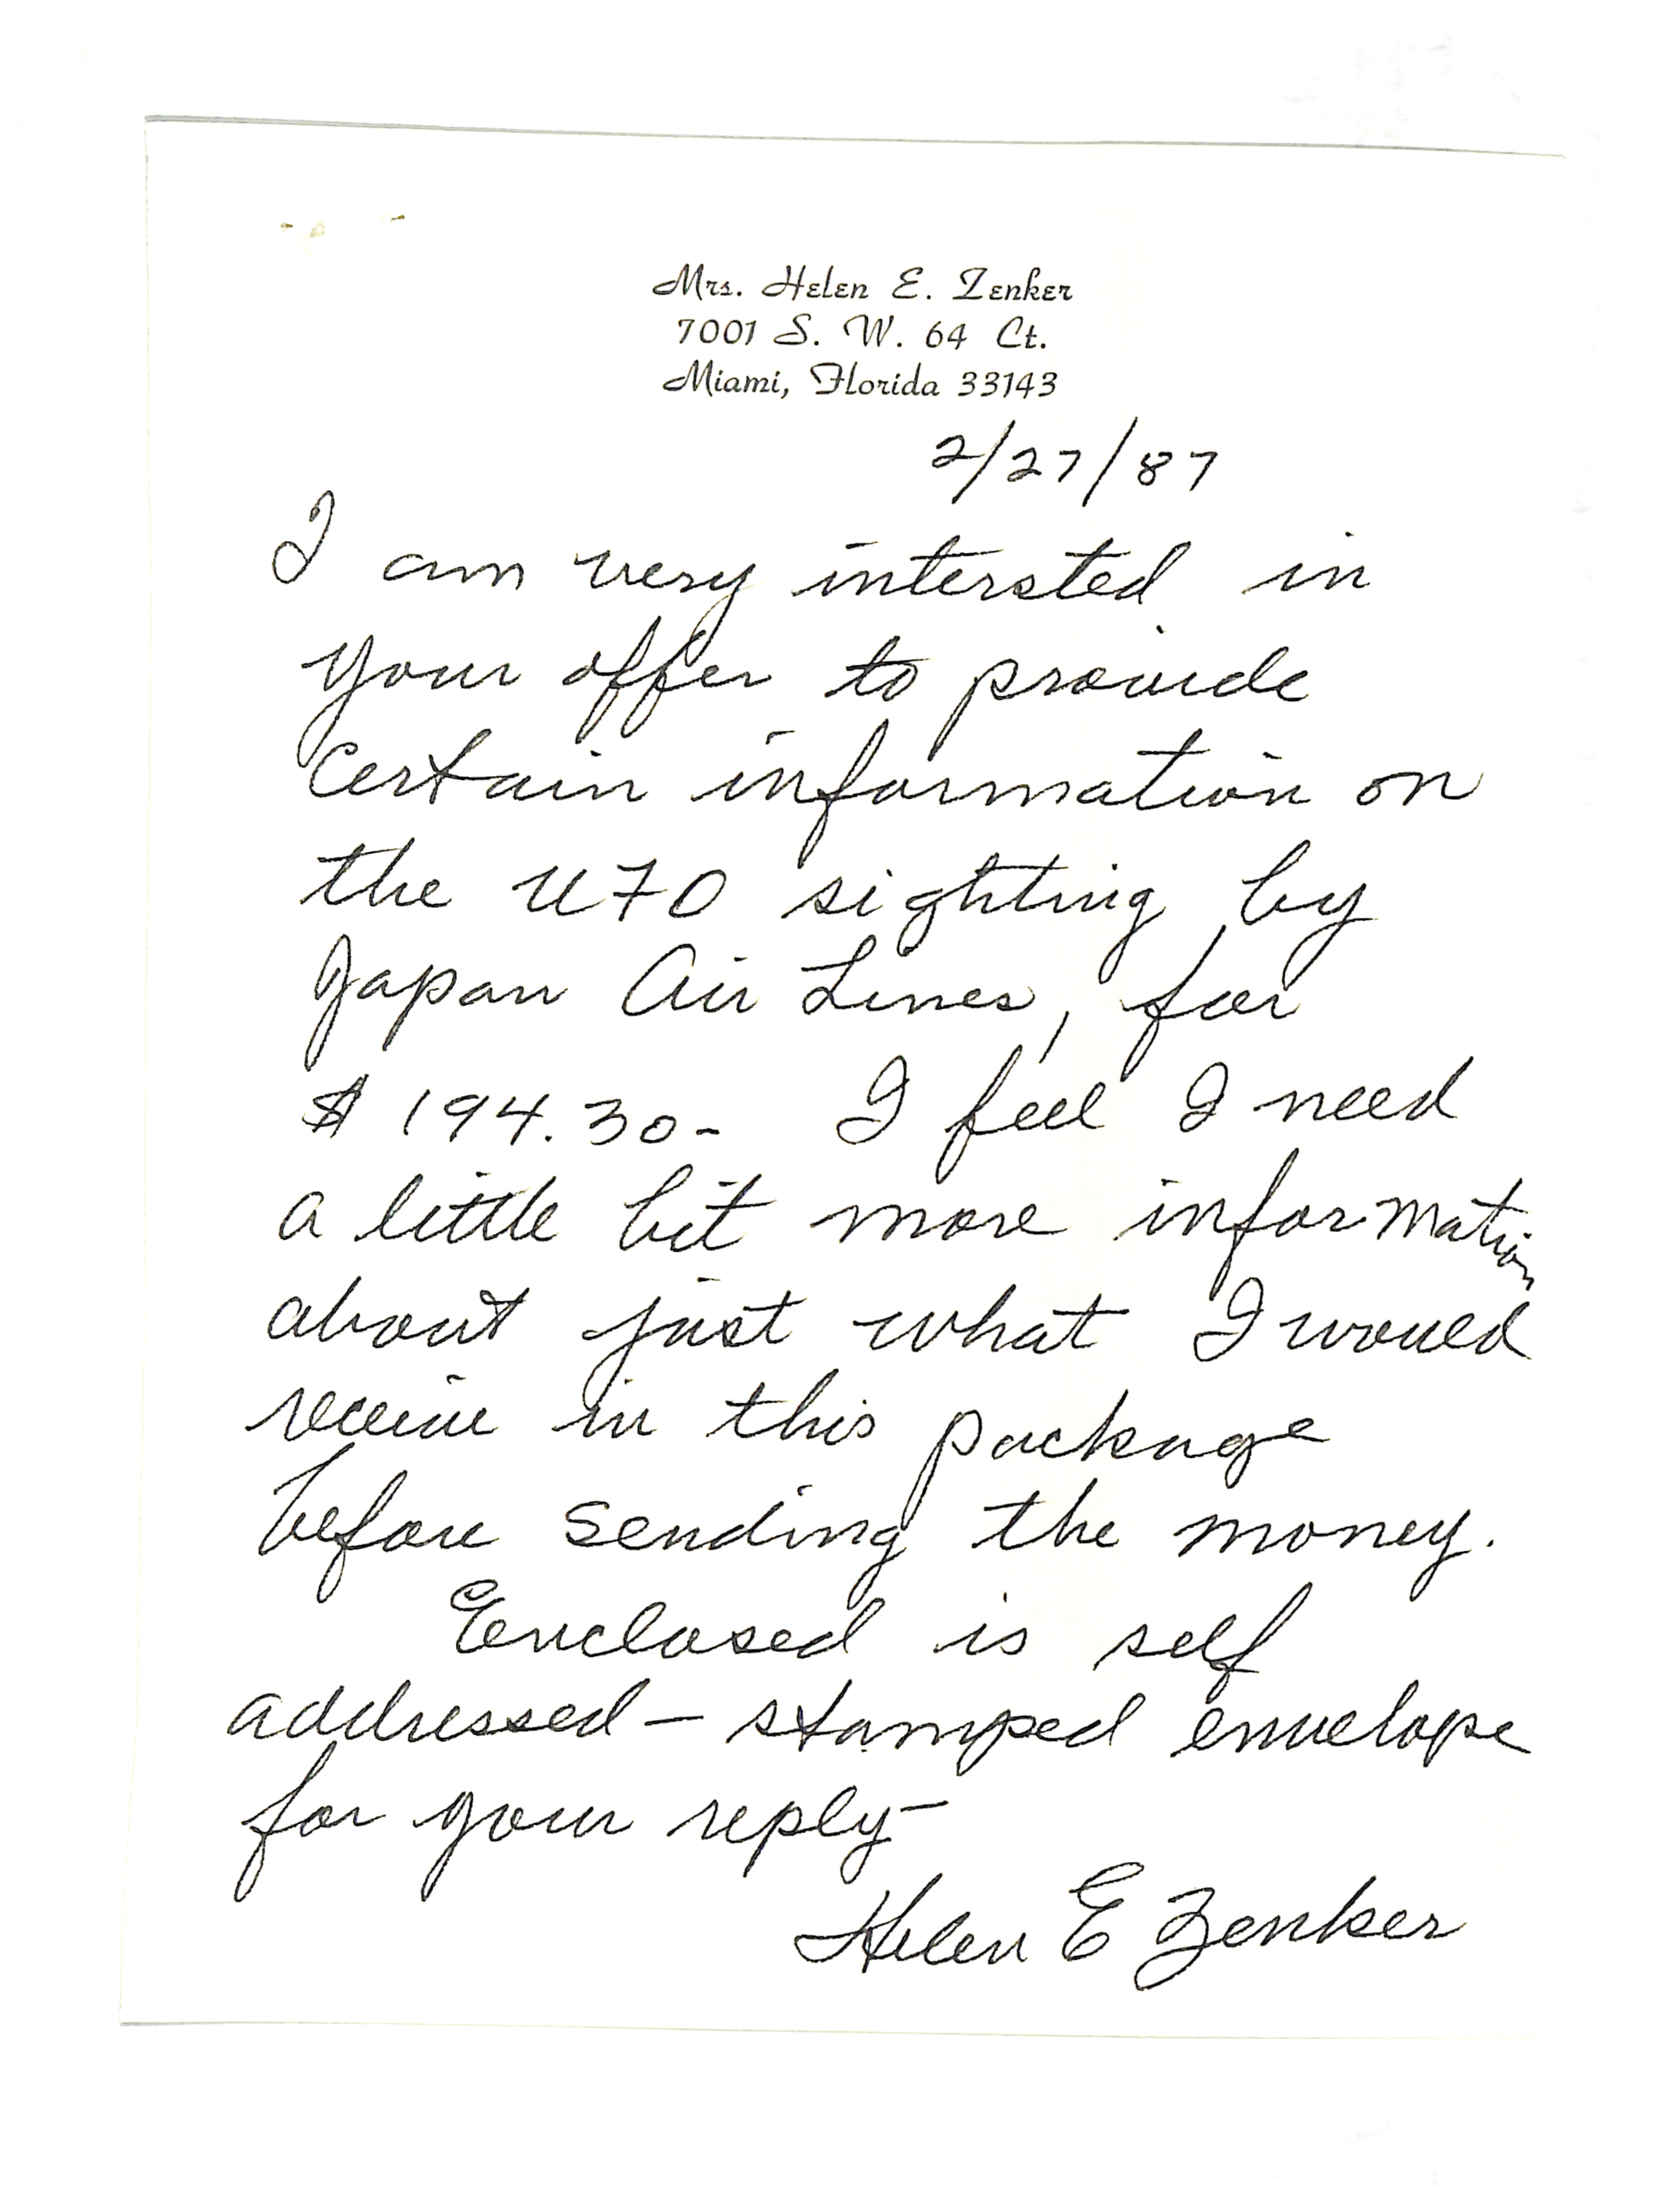 Mrs. Helen E. Zenker
7001 S. W. 64 Ct.
Miami, Florida 33143
2/27/87
I am very intersted in
your offer to provide
certain information on
the UFO sighting by
Japan Air Lines, for
$194.30- I feel I need
a little bit more information
about just what I would
receive in this package
before sending the money.
Enclosed is self
addressed - stamped envelope
for your reply-
Helen E Zenker